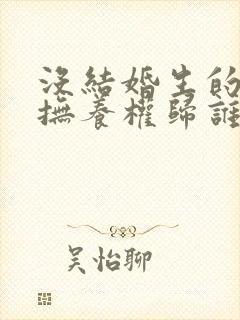 沒結婚生的
撫養權歸誰
吳怡聊